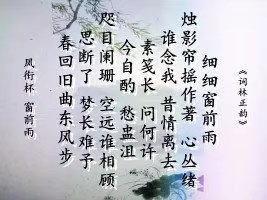 《词林正韵》
细细窗前雨
烛影帘摇作著 心丛绪
谁念我 昔情离去
素笺长 问何许
今自酌 愁盅沮
咫目阑珊 空远谁相顾
思断了 梦长难予
春回旧曲东风步
风衔杯 窗前雨